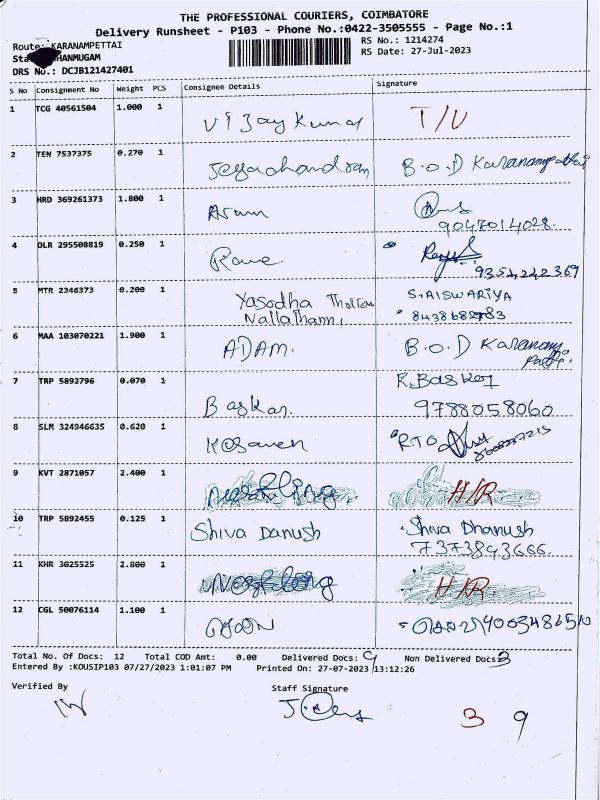 THE PROFESSIONAL COURIERS, COIMBATORE
Delivery Runsheet - P103 - Phone No.:0422-3505555 - Page No.:1
Route: KARANAMPETTAI
RS No.: 1214274
HANMUGAM
RS Date: 27-Jul-2023
DRS No.: DCJB121427401
S No Consignment No Weight PCS Consignee Details Signature
1 TCG 40561504 1.000 1 Vijaykumar T/U
2 TEN 7537375 0.270 1 Jeyachandran B.O.D Karanampattai
3 HRD 369261373 1.800 1 Arum
9047014028.
4 DLR 295508819 0.250 1
9354242369
5 MTR 2346373 0.200 1 Yasodha S.AISWARIYA
Nallathanni, 8438682783
6 MAA 103070221 1.900 1 ADAM. B.O.D Karanam
7 TRP 5892796 0.070 1 Baskar. R.Baskar
9788058060
8 SLM 324946635 0.620 1 Kesaven
9 KVT 2871057 2.400 1 H/R
10 TRP 5892455 0.125 1 Shiva Danush Shiva Dhanush
7373843666.
11 KHR 3025525 2.800 1 H/R
12 CGL 50076114 1.100 1
Total No. Of Docs: 12 Total COD Amt: 0.00 Delivered Docs: 9 Non Delivered Docs 3
Entered By :KOUSIP103 07/27/2023 1:01:07 PM Printed On: 27-07-2023 13:12:26
Verified By Staff Signature
3 9